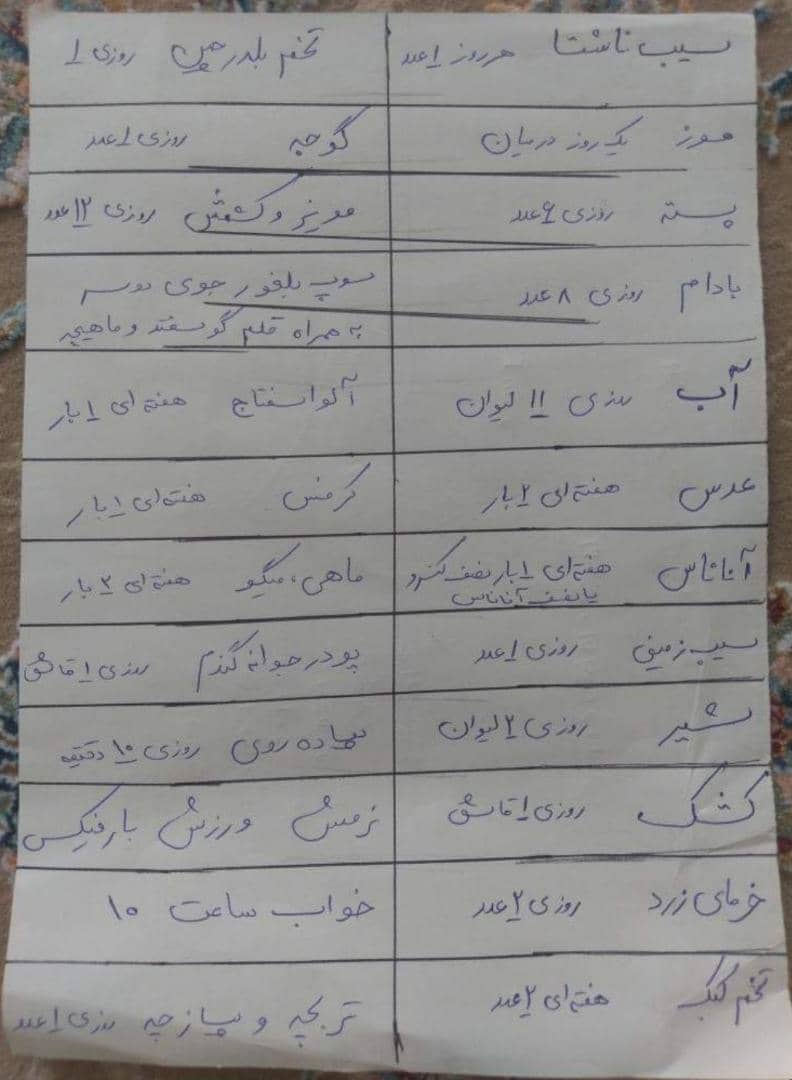 سیب ناشتا هرروز ۱عدد
موز یک روز درمیان
پسته روزی ۶عدد
بادام روزی ۸ عدد
آب روزی ۱۱ لیوان
عدس هفته ای ۲ بار
آناناس هفته ای ۱ بار نصف کنسرو
یا نصف آناناس
سیب زمینی روزی ۱عدد
شیر روزی ۲ لیوان
کشک روزی ۱ قاشق
خرمای زرد روزی ۲ عدد
تخم کبک هفته ای ۲ عدد
تخم بلدرچین روزی ۱
گوجه روزی ۱عدد
مویز و کشمش روزی ۱۲ عدد
سوپ بلغور جوی دوسر
به همراه قلم گوسفند و ماهیچه
آلو اسفناج هفته ای ۱ بار
کرفس هفته ای ۱ بار
ماهی، میگو هفته ای ۲ بار
پودر جوانه گندم روزی ۱ قاشق
پیاده روی روزی ۱۰ دقیقه
نرمش ورزش بارفیکس
خواب ساعت ۱۰
تربچه و پیازچه روزی ۱عدد